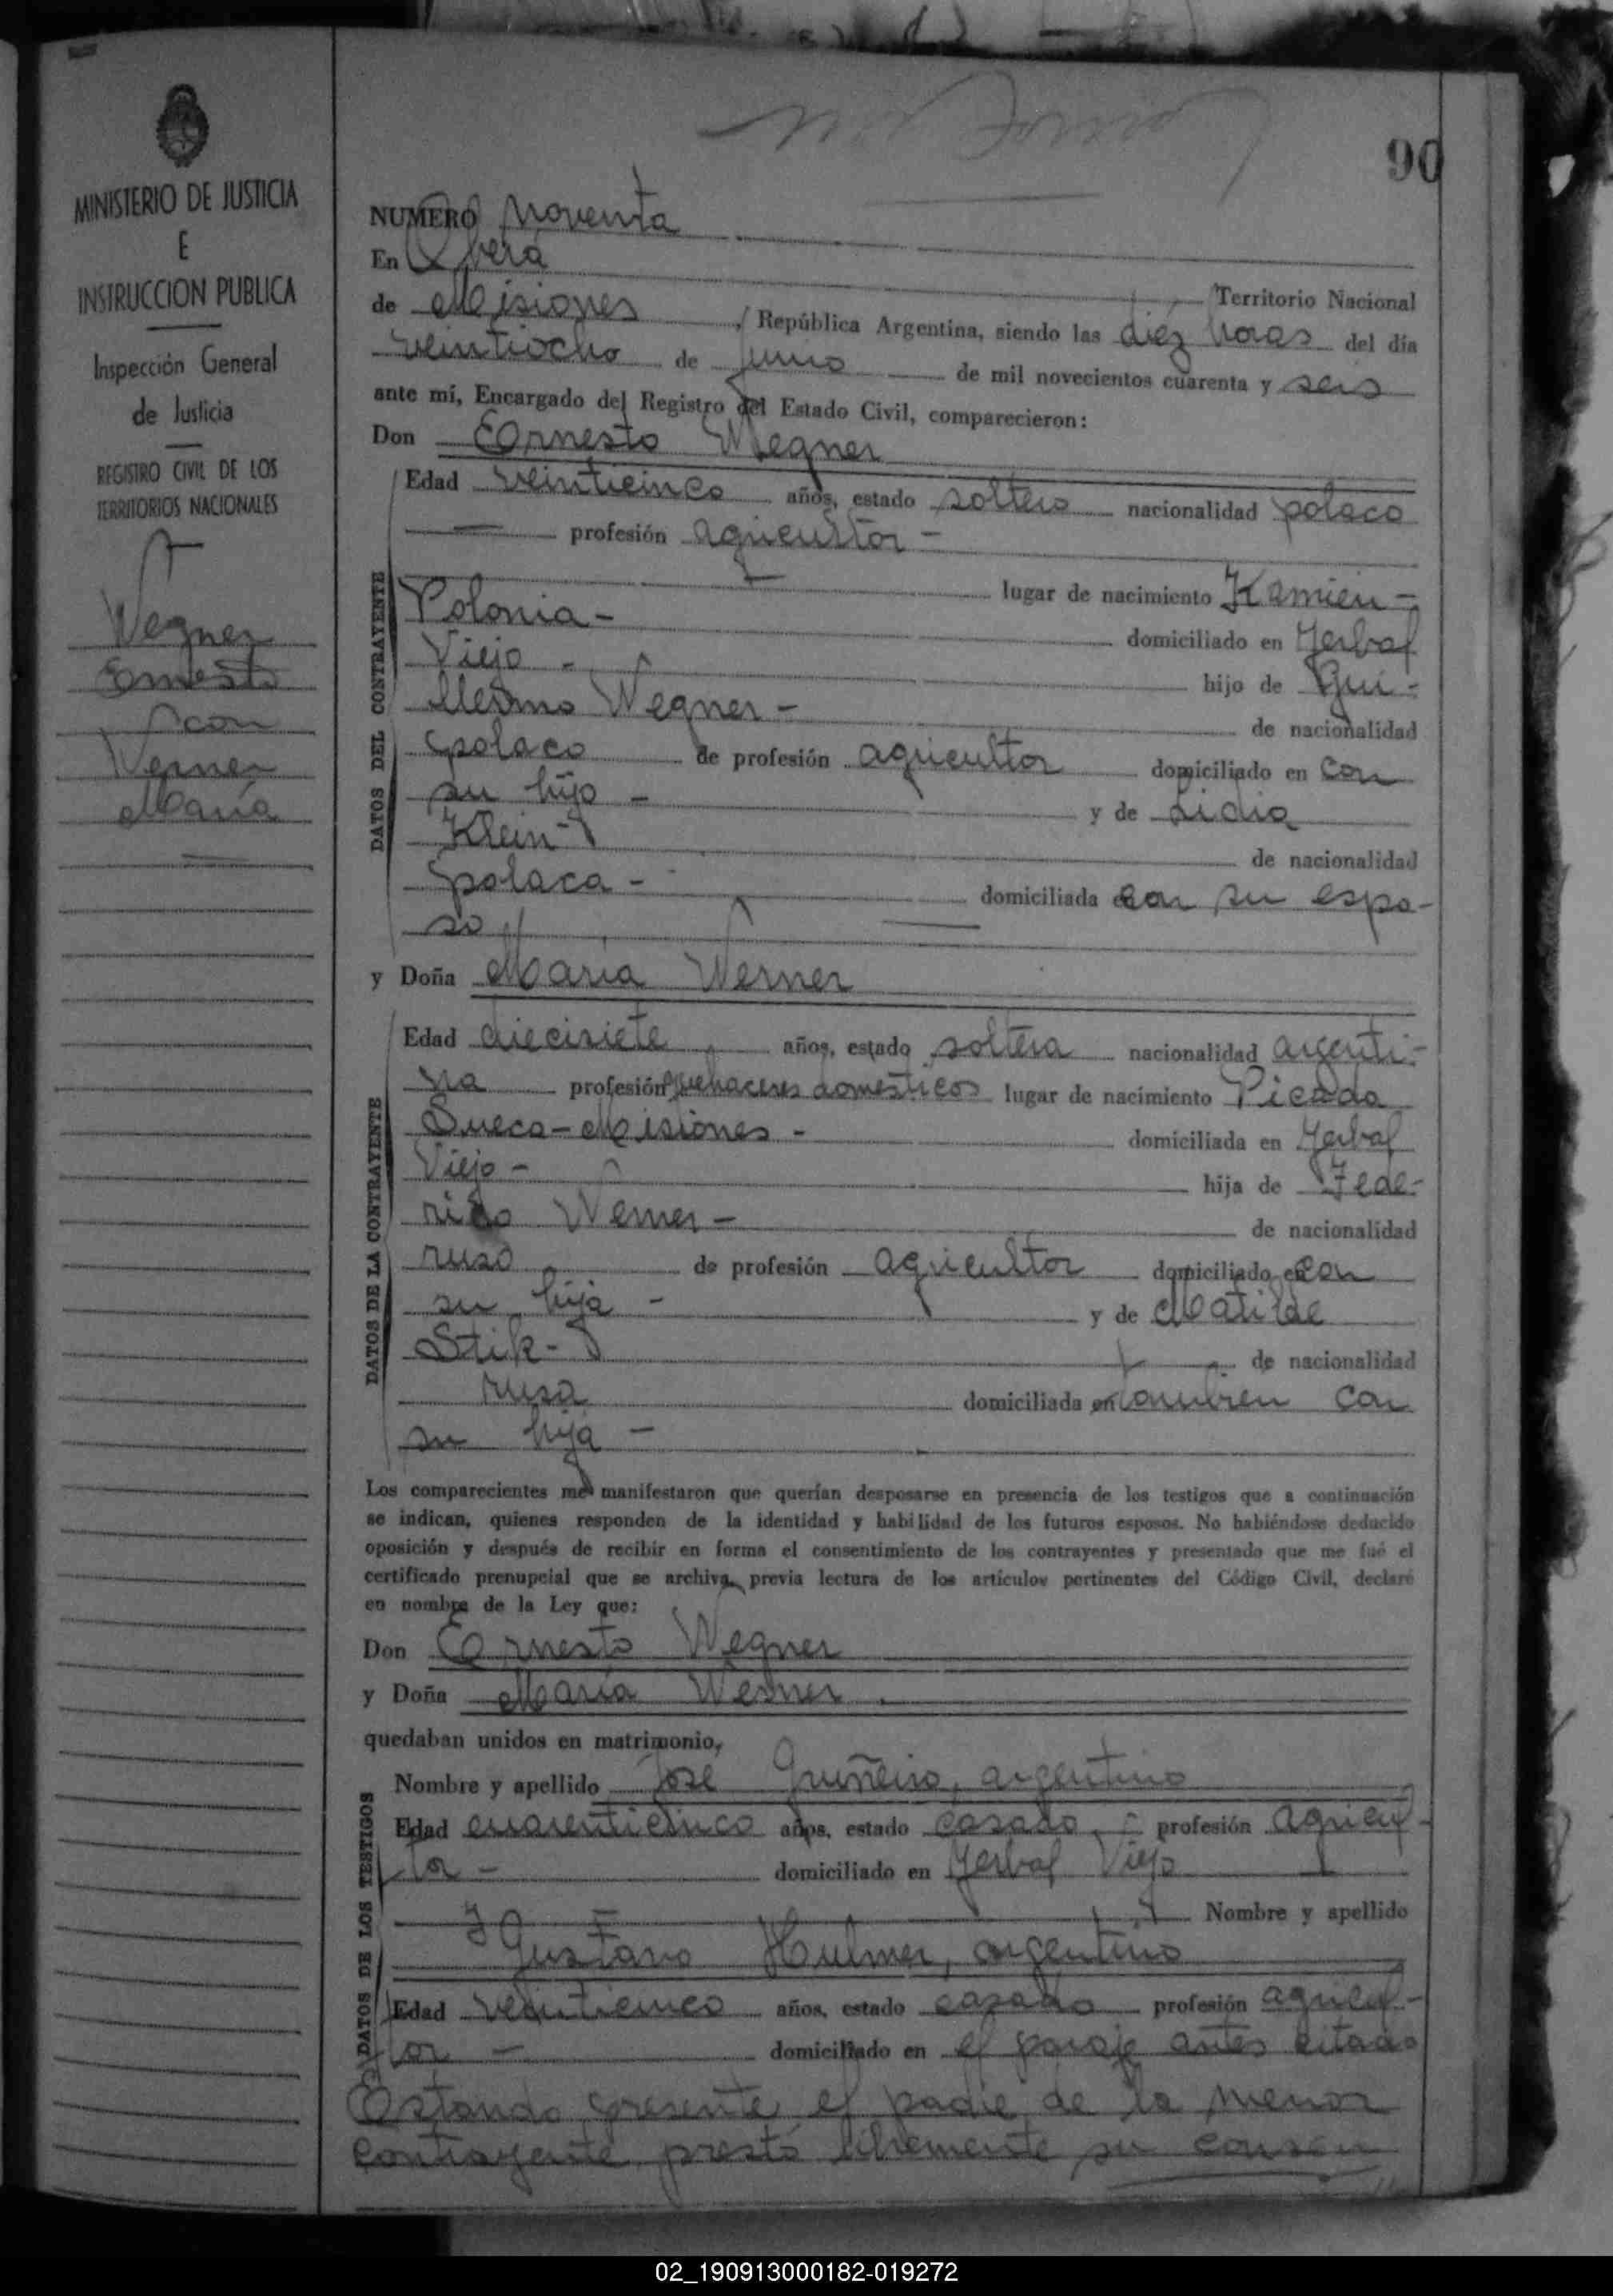 90
MINISTERIO DE JUSTICIA
E
INSTRUCCION PUBLICA
Inspección General
de Justicia
REGISTRO CIVIL DE LOS
TERRITORIOS NACIONALES
Wegner
Ernesto
con
Werner
María
NUMERO Noventa
En Oberá
Territorio Nacional
de Misiones, República Argentina, siendo las diéz horas del día
veintiocho de Junio de mil novecientos cuarenta y seis
ante mí, Encargado del Registro del Estado Civil, comparecieron:
Don Ernesto Wegner
DATOS DEL CONTRAYENTE
Edad veinticinco años, estado soltero nacionalidad polaco
profesión agricultor -
lugar de nacimiento Kamien -
Polonia - domiciliado en Yerbal
Viejo - hijo de Gui-
llermo Wegner - de nacionalidad
polaco de profesión agricultor domiciliado en con
su hijo - y de Lidia
Klein - de nacionalidad
polaca - domiciliada con su espo-
so
y Doña María Werner
DATOS DE LA CONTRAYENTE
Edad diecisiete años, estado soltera nacionalidad argenti-
na profesión quehaceres domesticos lugar de nacimiento Picada
Sueca - Misiones - domiciliada en Yerbal
Viejo - hija de Fede-
rico Werner - de nacionalidad
ruso de profesión agricultor domiciliado en con
su hija - y de Matilde
Stik - de nacionalidad
rusa domiciliada en tambien con
su hija -
Los comparecientes me manifestaron que querían desposarse en presencia de los testigos que a continuación
se indican, quienes responden de la identidad y habilidad de los futuros esposos. No habiéndose deducido
oposición y después de recibir en forma el consentimiento de los contrayentes y presentado que me fué el
certificado prenupcial que se archiva, previa lectura de los artículos pertinentes del Código Civil, declaré
en nombre de la Ley que:
Don Ernesto Wegner
y Doña María Werner
quedaban unidos en matrimonio,
DATOS DE LOS TESTIGOS
Nombre y apellido José Gruñeiro, argentino
Edad cuarenticinco años, estado casado - profesión agricul-
tor - domiciliado en Yerbal Viejo
Nombre y apellido
Gustavo Hulmer, argentino
Edad veinticinco años, estado casado profesión agricul-
tor - domiciliado en el paraje antes citado
Estando presente el padre de la menor
contrayente prestó libremente su consen
02_190913000182-019272